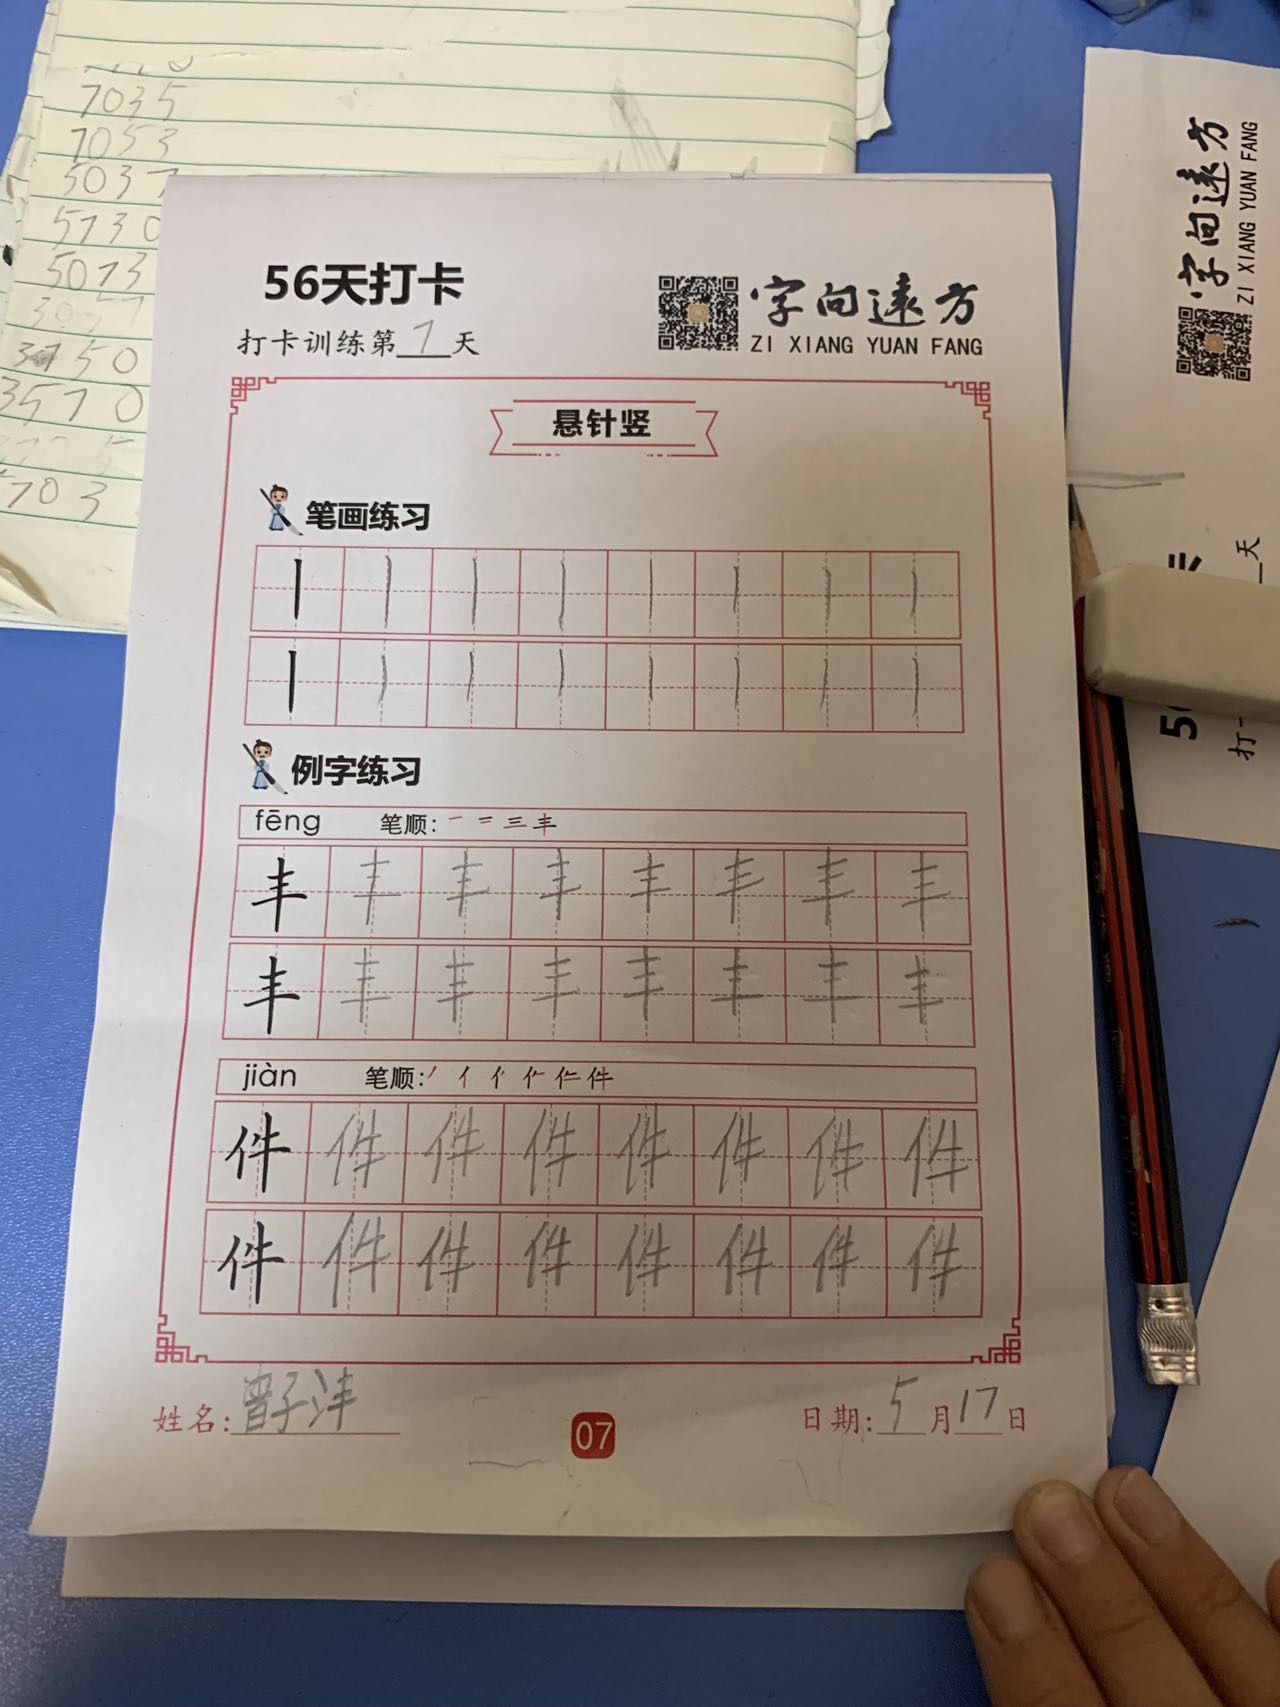 7035
7053
5037
5730
5073
3057
3750
3570
703
56天打卡
打卡训练第7天
字向远方
ZI XIANG YUAN FANG
悬针竖
笔画练习
例字练习
fēng 笔顺: 一 二 三 丰
丰 丰 丰 丰 丰 丰 丰 丰
丰 丰 丰 丰 丰 丰 丰 丰
jiàn 笔顺: 丿 亻 件
件 件 件 件 件 件 件 件
件 件 件 件 件 件 件 件
姓名: 曾子沣
07
日期: 5月17日
字向远方
ZI XIANG YUAN FANG
天
打